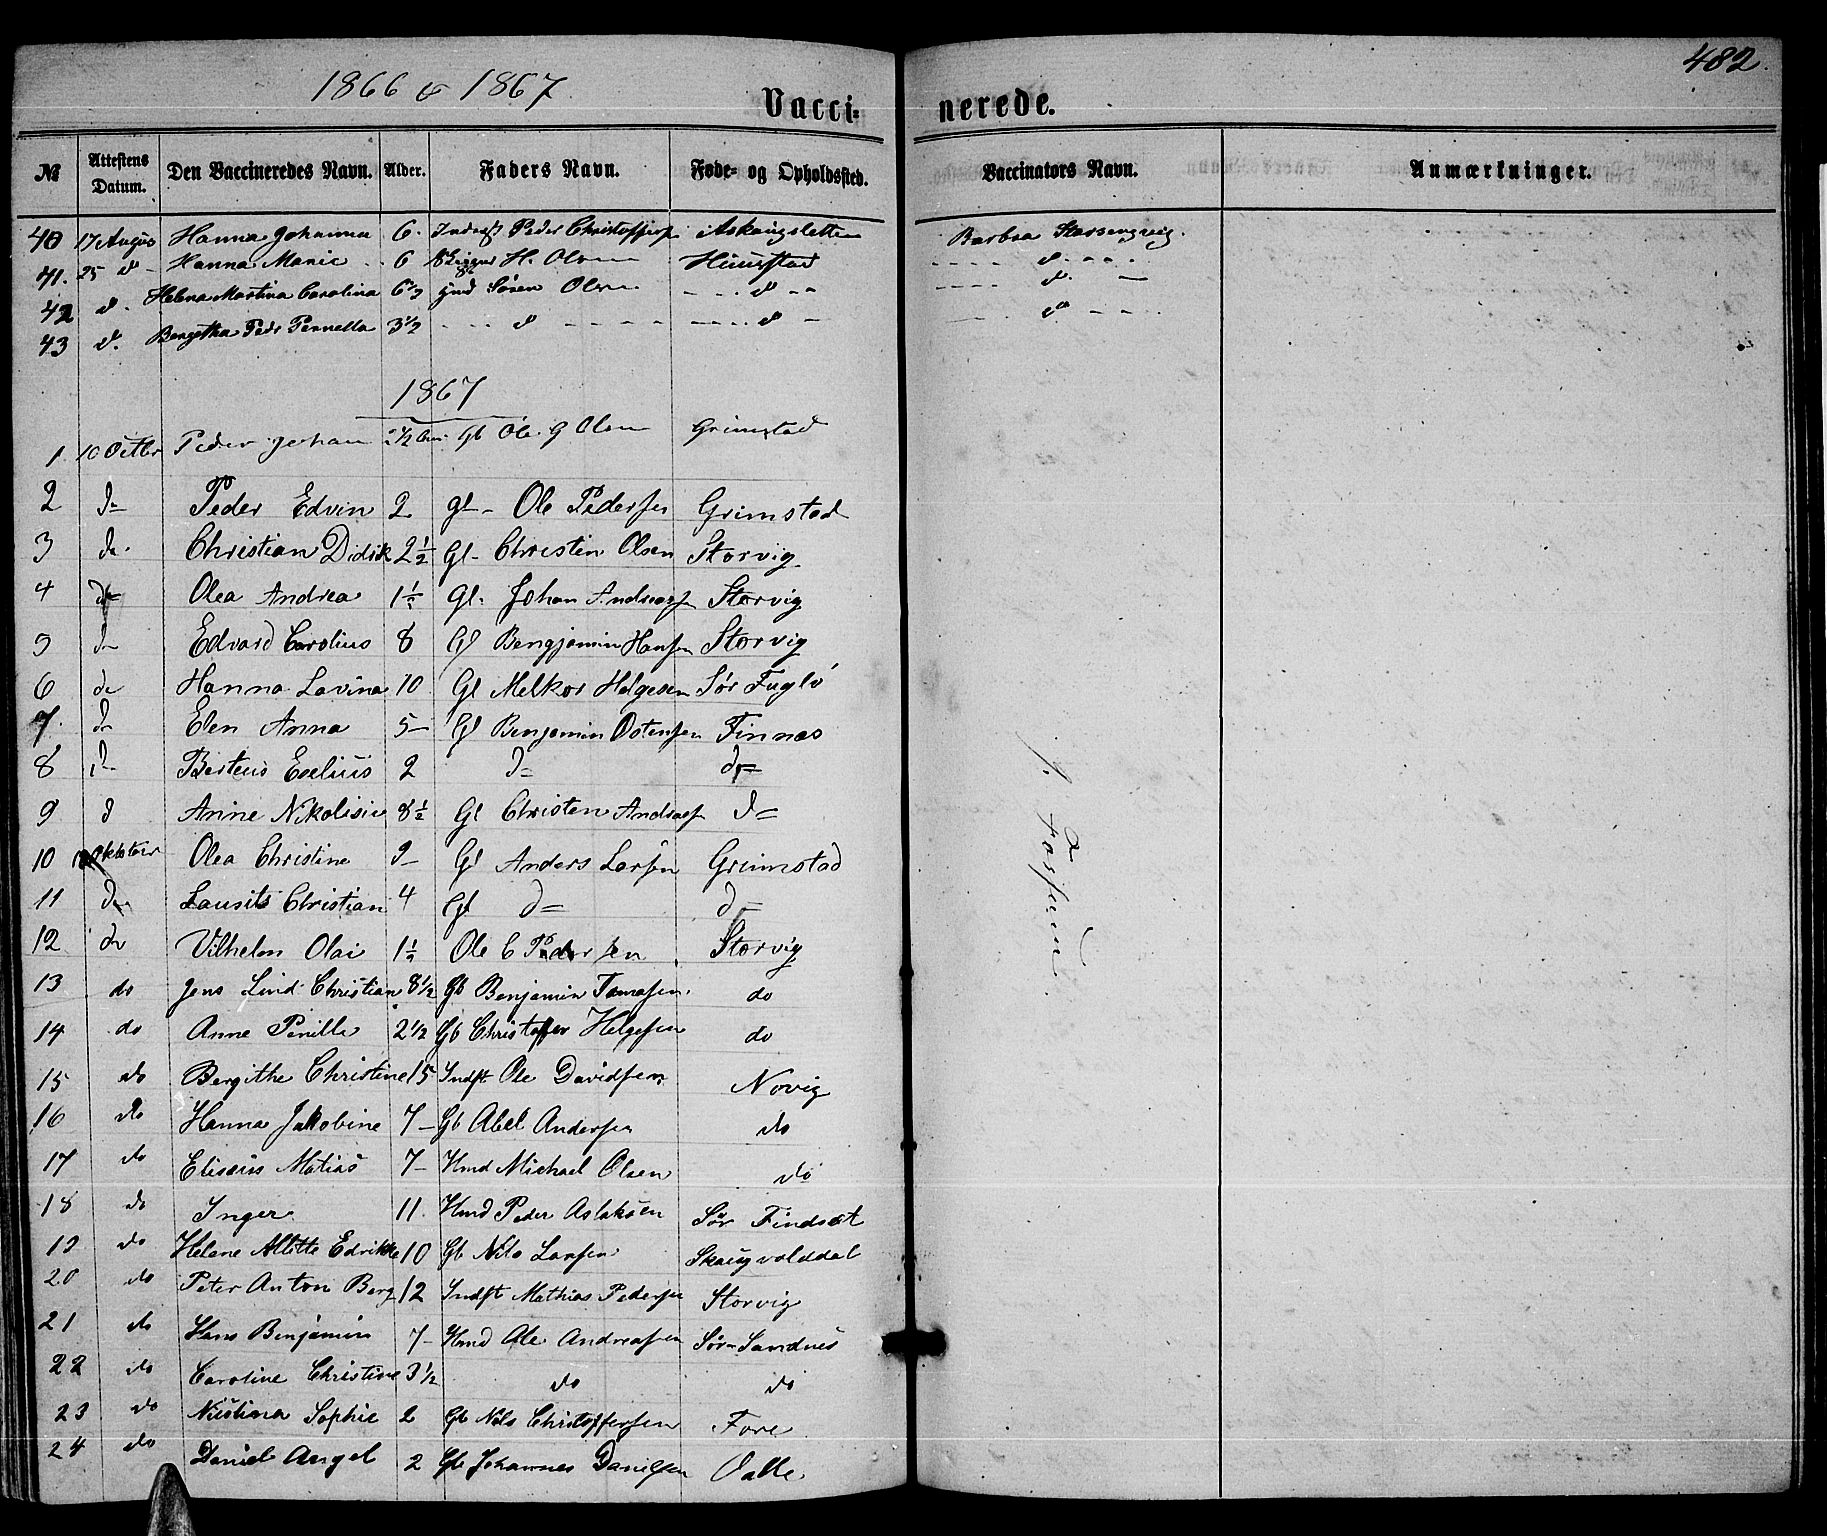 482.
1866 & 1867
Vacci= nerede.
№ Attestens Datum. Den Vaccineredes Navn. Alder. Faders Navn. Føde- og Opholdssted. Vaccinators Navn. Anmærkninger.
40 17 August Hanna Johanna 6. Peder
41. 25 d - Hanna Marie 6 H. Olsen d
42 d. Helena Martina Carolina Søren Olsen d d
43 d. Peds Pernella 3½ d d d
1867
1 10 Octbr Peder Johan Gb Ole G Olsen Grimstad
2 d= Peder Edvin 2 gl- Ole Pedersen Grimstad
3 do. Christian Didrik 2½ Gl- Christen Olsen Storvig
4 d= Olea Andrea 1½ Gl. Johan Andreasen Storvig
5 d= Edvard Carolius 8 Gl Bengjamin Hansen Storvig
6 do Hanna Lavina 10 Gl Melkor Helgesen Sør Fuglø
7. d= Elen Anna 5- Gl Benjamin Ostensen Finnæs
8 d= Berteus Eselius 2 d= do=
9 d Anine Nikolisie 8½ Gl Christen Andreas d=
10 Oktober Olea Christine 9- Gl Anders Larsen Grimstad
11 do Lausits Christian 4 Gl d= d=
12 do Vilhelm Olai 1½ Ole C Pedersen Storvig
13 do Jens Lind Christian 8½ Gb Benjamin Tomasen do
14 do Anne Pernille 2½ Gb Christoffer Helgesen do
15 do Bergithe Christine 15 Indst Ole Davidsen Novig
16 do Hanna Jakobine 7- Gb Abel Andersen do
17 do Elisæus Matias 7- Hmd Michael Olsen do
18 do Inger 11. Hmd Peder Aslaksen Sør Findset
19 do Helene Alette Edrikke 10 Gb Nils Larsen Skaugvolddal
20 do Peter Anton Berg 12 Indst Mathias Pedersen Storvig
21 do Hans Benjamin 7- Hmd Ole Andreasen Sør-Sandnes
22 do Caroline Christine 3½ do do
23 do Sophie 2 Gb Nils Christoffersen Fore
24 do Daniel Angel 2 Gb Johannes Danielsen